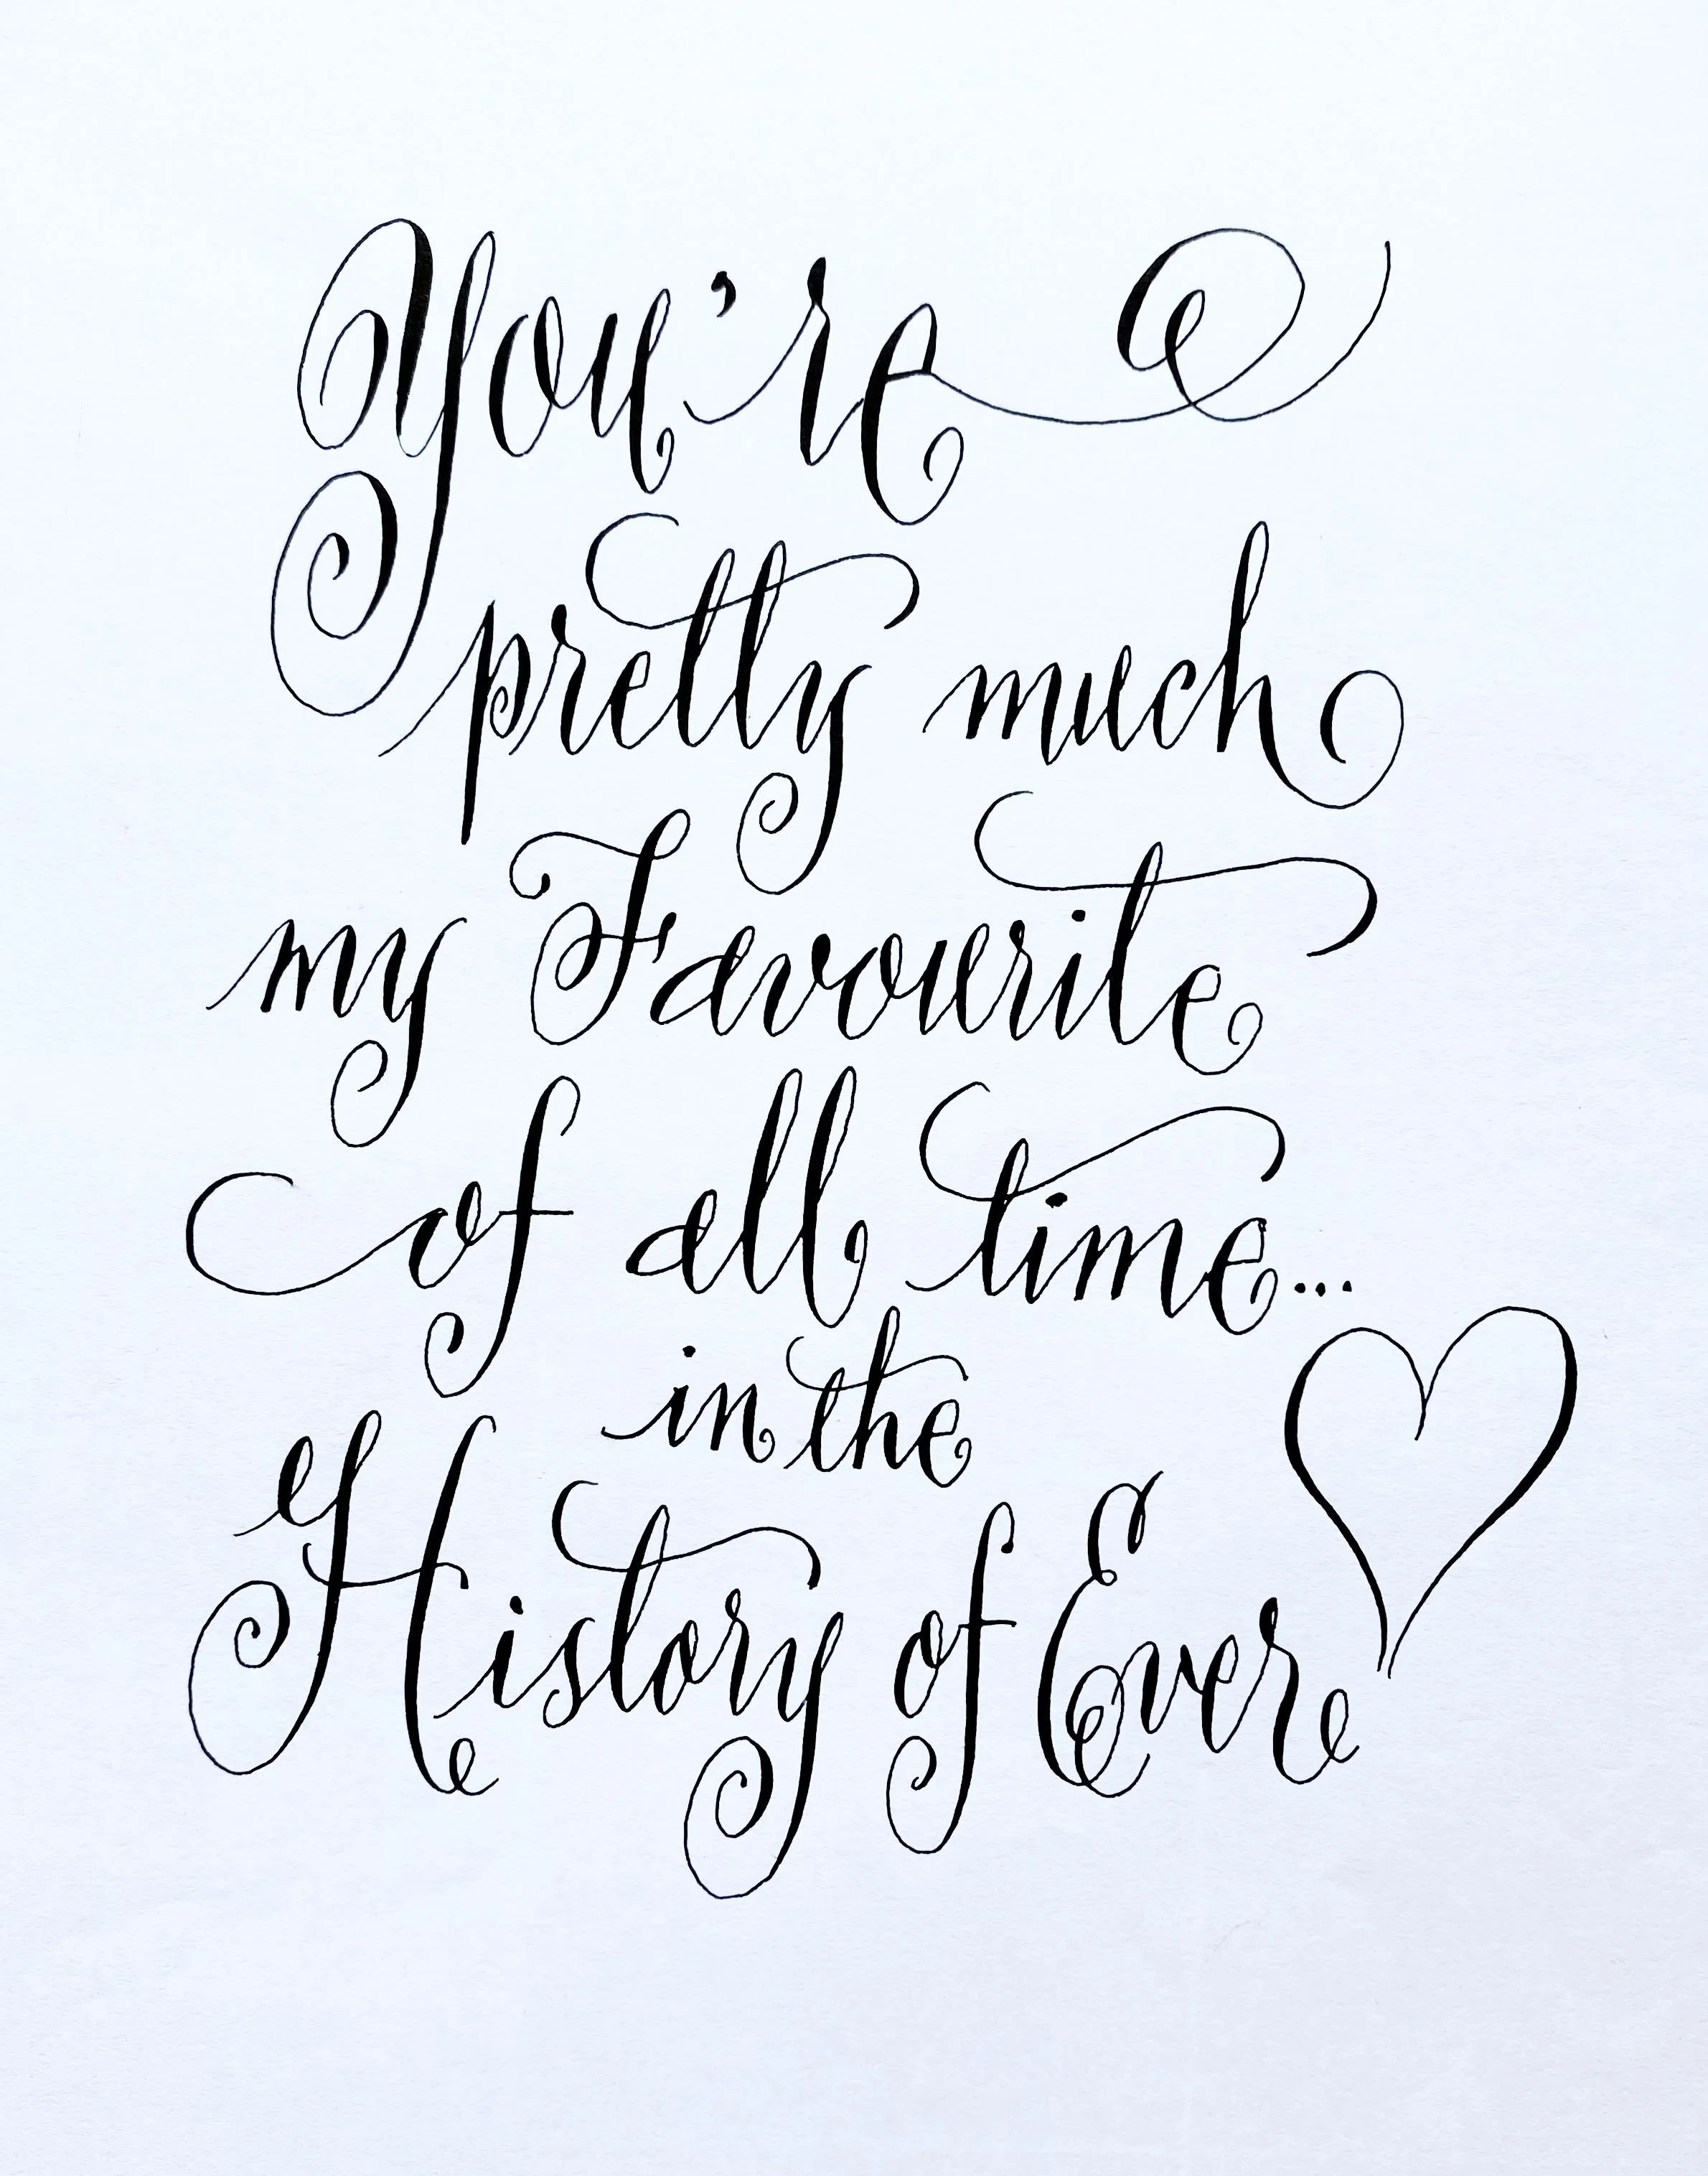 You're
pretty much
my Favourite
of all time...
in the
History of Ever